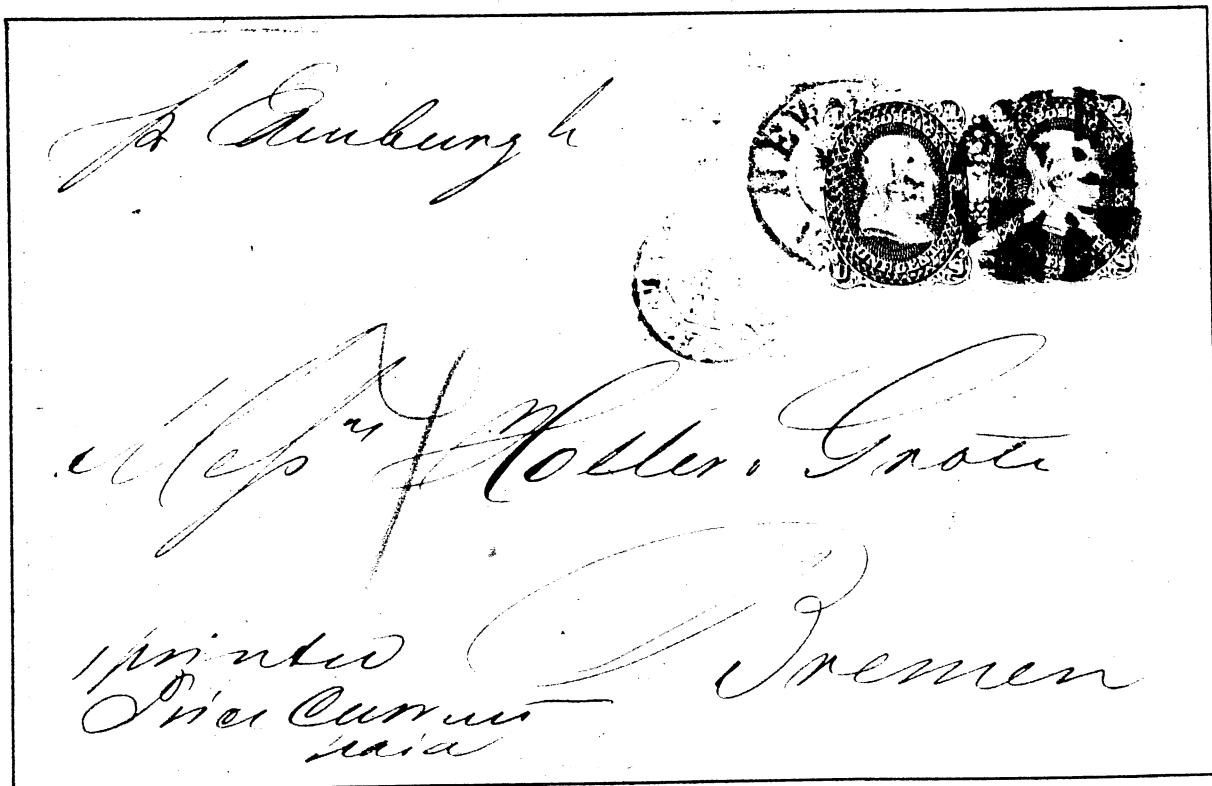 pr Edinburgh
NEW
U S
Messrs Hotler. Grote
Bremen
printed
Price Current
paid